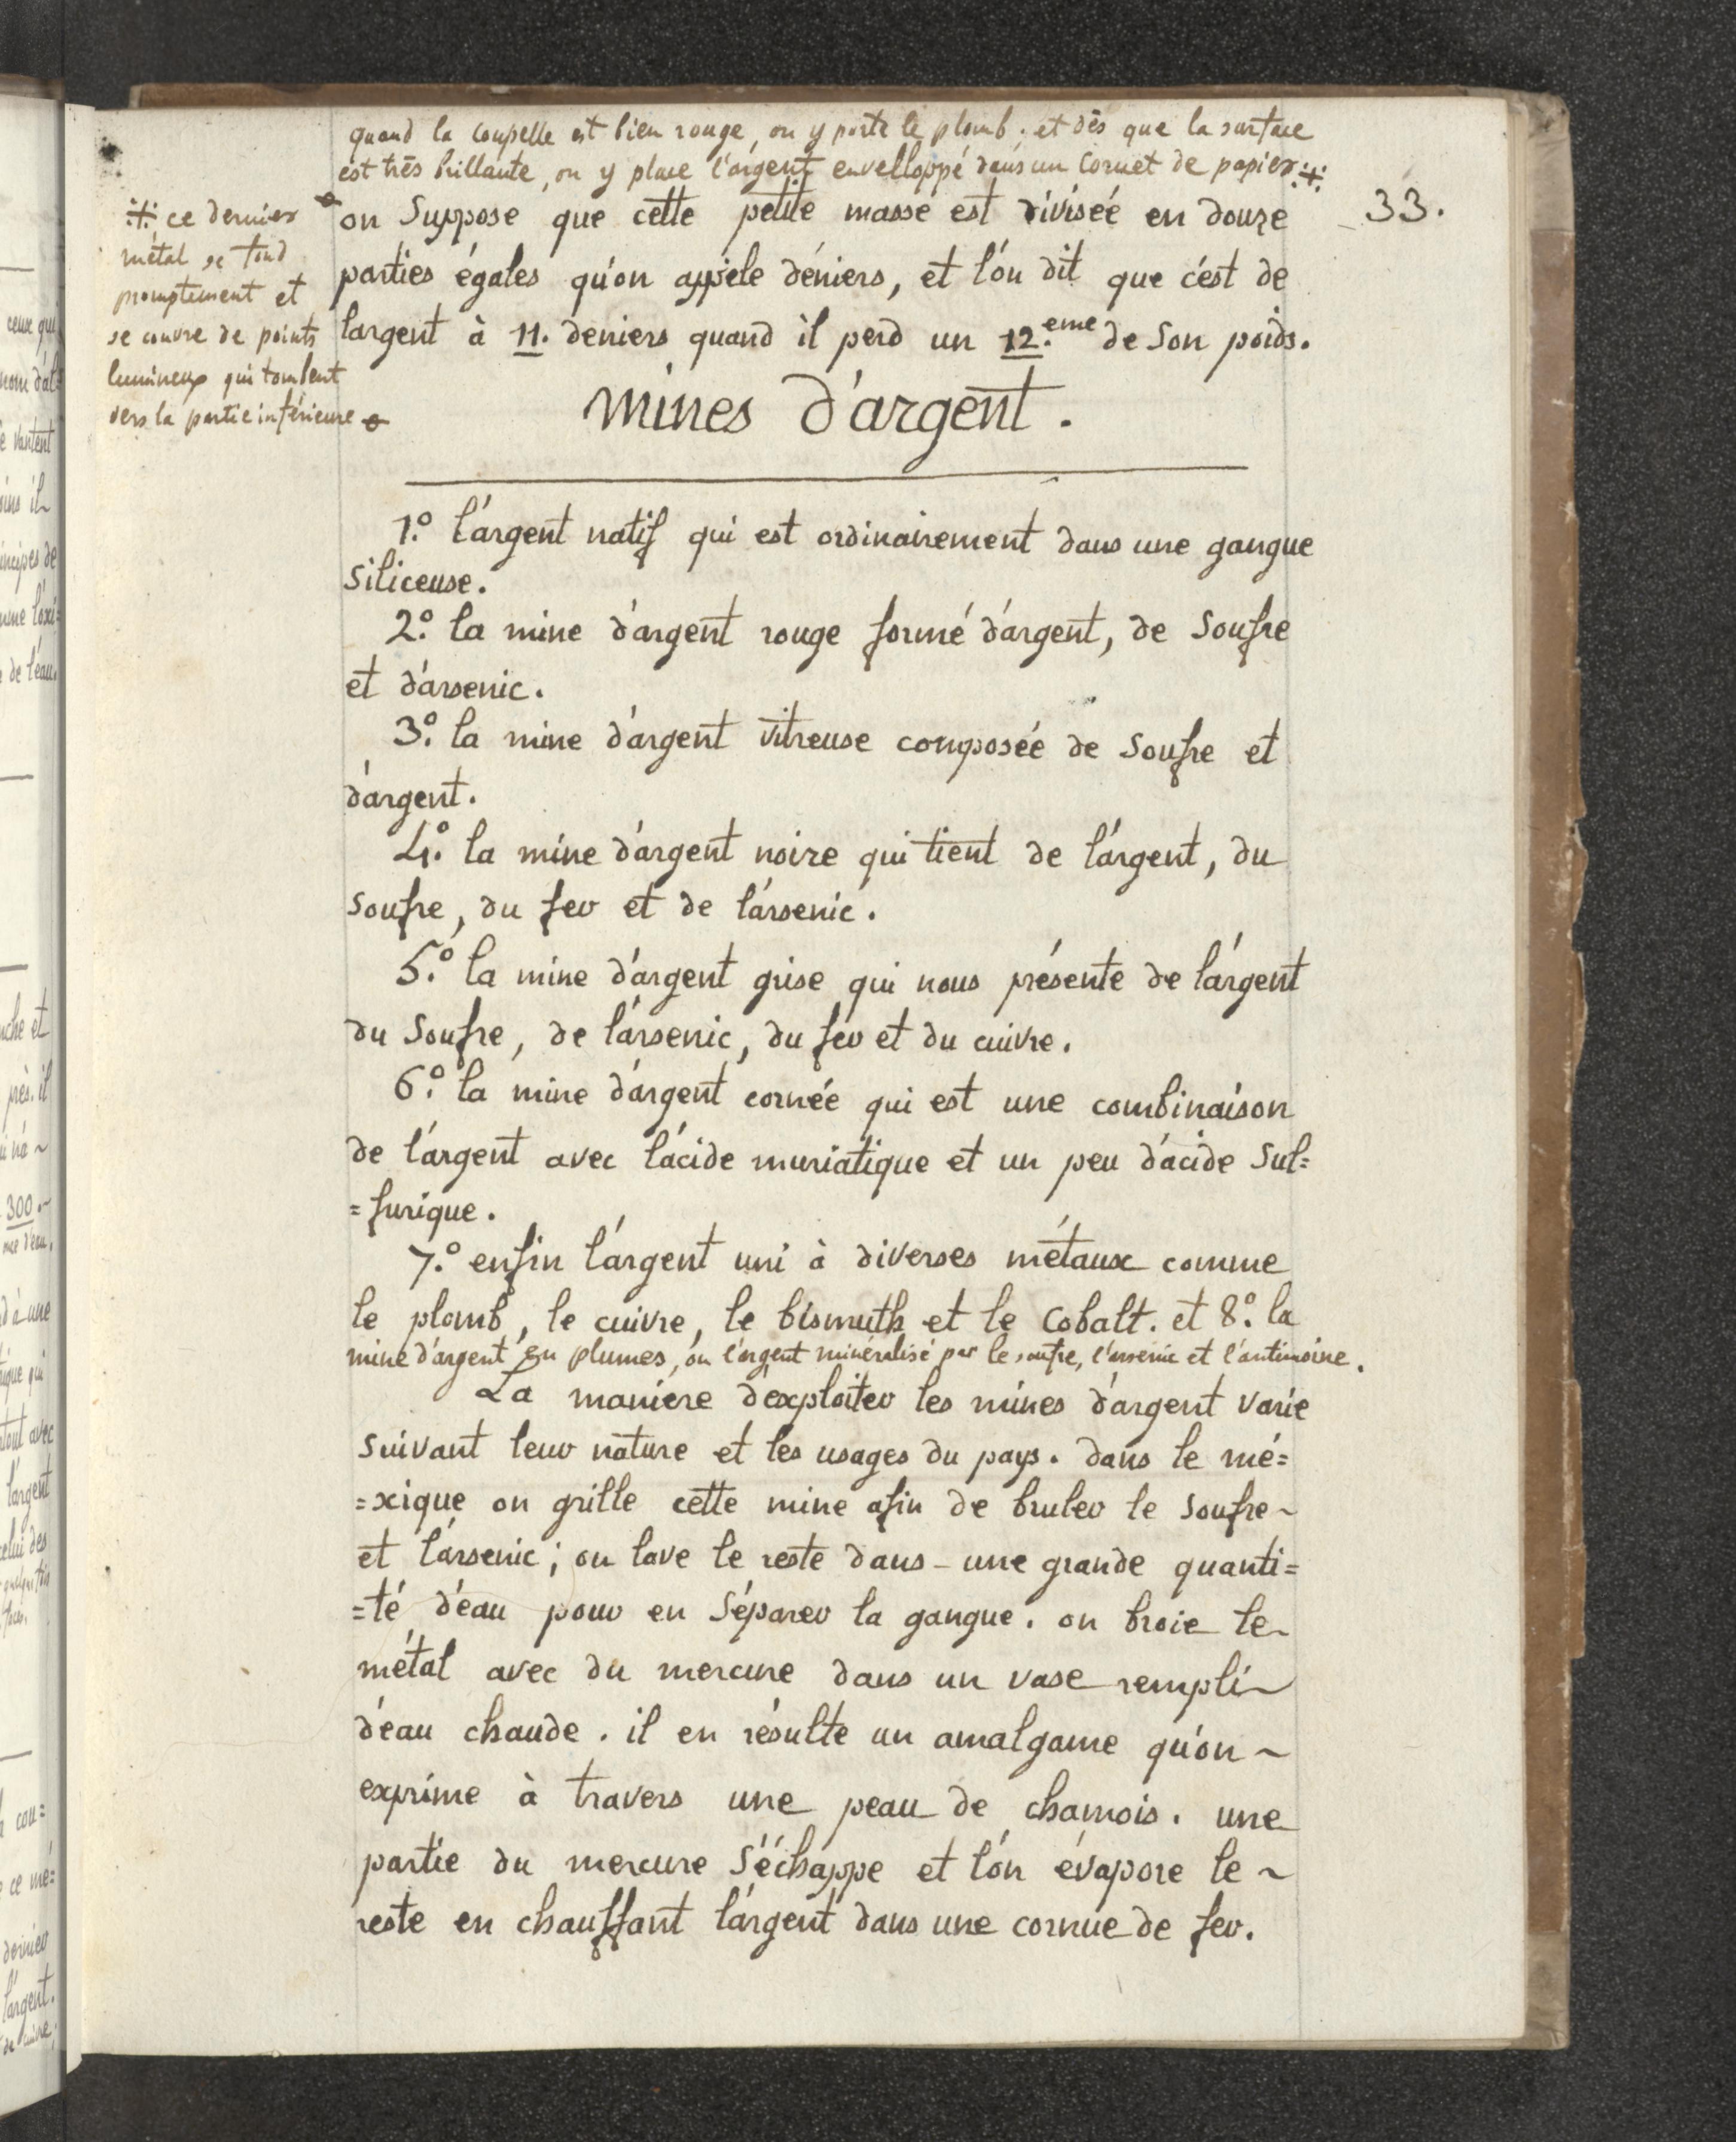 quand la coupelle est bien rouge, on y porte le plomb; et dès que la surface
est très brillante, on y place l'argent envelloppé dans un Cornet de papier ⁜
33.
⁜ ce dernier
métal se fond
promptement et
se couvre de points
lumineux qui tombent
vers la partie inférieure
on Suppose que cette petite masse est divisée en douze
parties égales qu'on appèle déniers, et l'on dit que c'est de
largent à 11. deniers quand il perd un 12.eme de Son poids.
mines d'argent.
1.° l'argent natif qui est ordinairement dans une gangue
Siliceuse.
2.° la mine d'argent rouge formé d'argent, de Soufre
et d'arsenic.
3.° la mine d'argent vitreuse composée de Soufre et
d'argent.
4.° la mine d'argent noire qui tient de l'argent, du
Soufre, du fer et de l'arsenic.
5.° la mine d'argent grise qui nous présente de l'argent
du Soufre, de l'arsenic, du fer et du cuivre.
6.° la mine d'argent cornée qui est une combinaison
de l'argent avec l'acide muriatique et un peu d'acide Sul=
=furique.
7.° enfin l'argent uni à diverses métaux comme
le plomb, le cuivre, le bismuth et le Cobalt. et 8.° la
mine d'argent en plumes, ou l'argent minéralisé par le soufre, l'arsenic et l'antimoine.
La manière d'exploiter les mines d'argent varie
Suivant leur nature et les usages du pays. dans le mé=
=xique on grille cette mine afin de bruler le Soufre ~
et l'arsenic; on lave le reste dans - une grande quanti=
=té d'eau pour en Séparer la gangue. on broie le ~
métal avec du mercure dans un vase rempli ~
d'eau chaude. il en résulte un amalgame qu'on ~
exprime à travers une peau de chamois. une
partie du mercure S'échappe et l'on évapore le ~
reste en chauffant l'argent dans une cornue de fer.